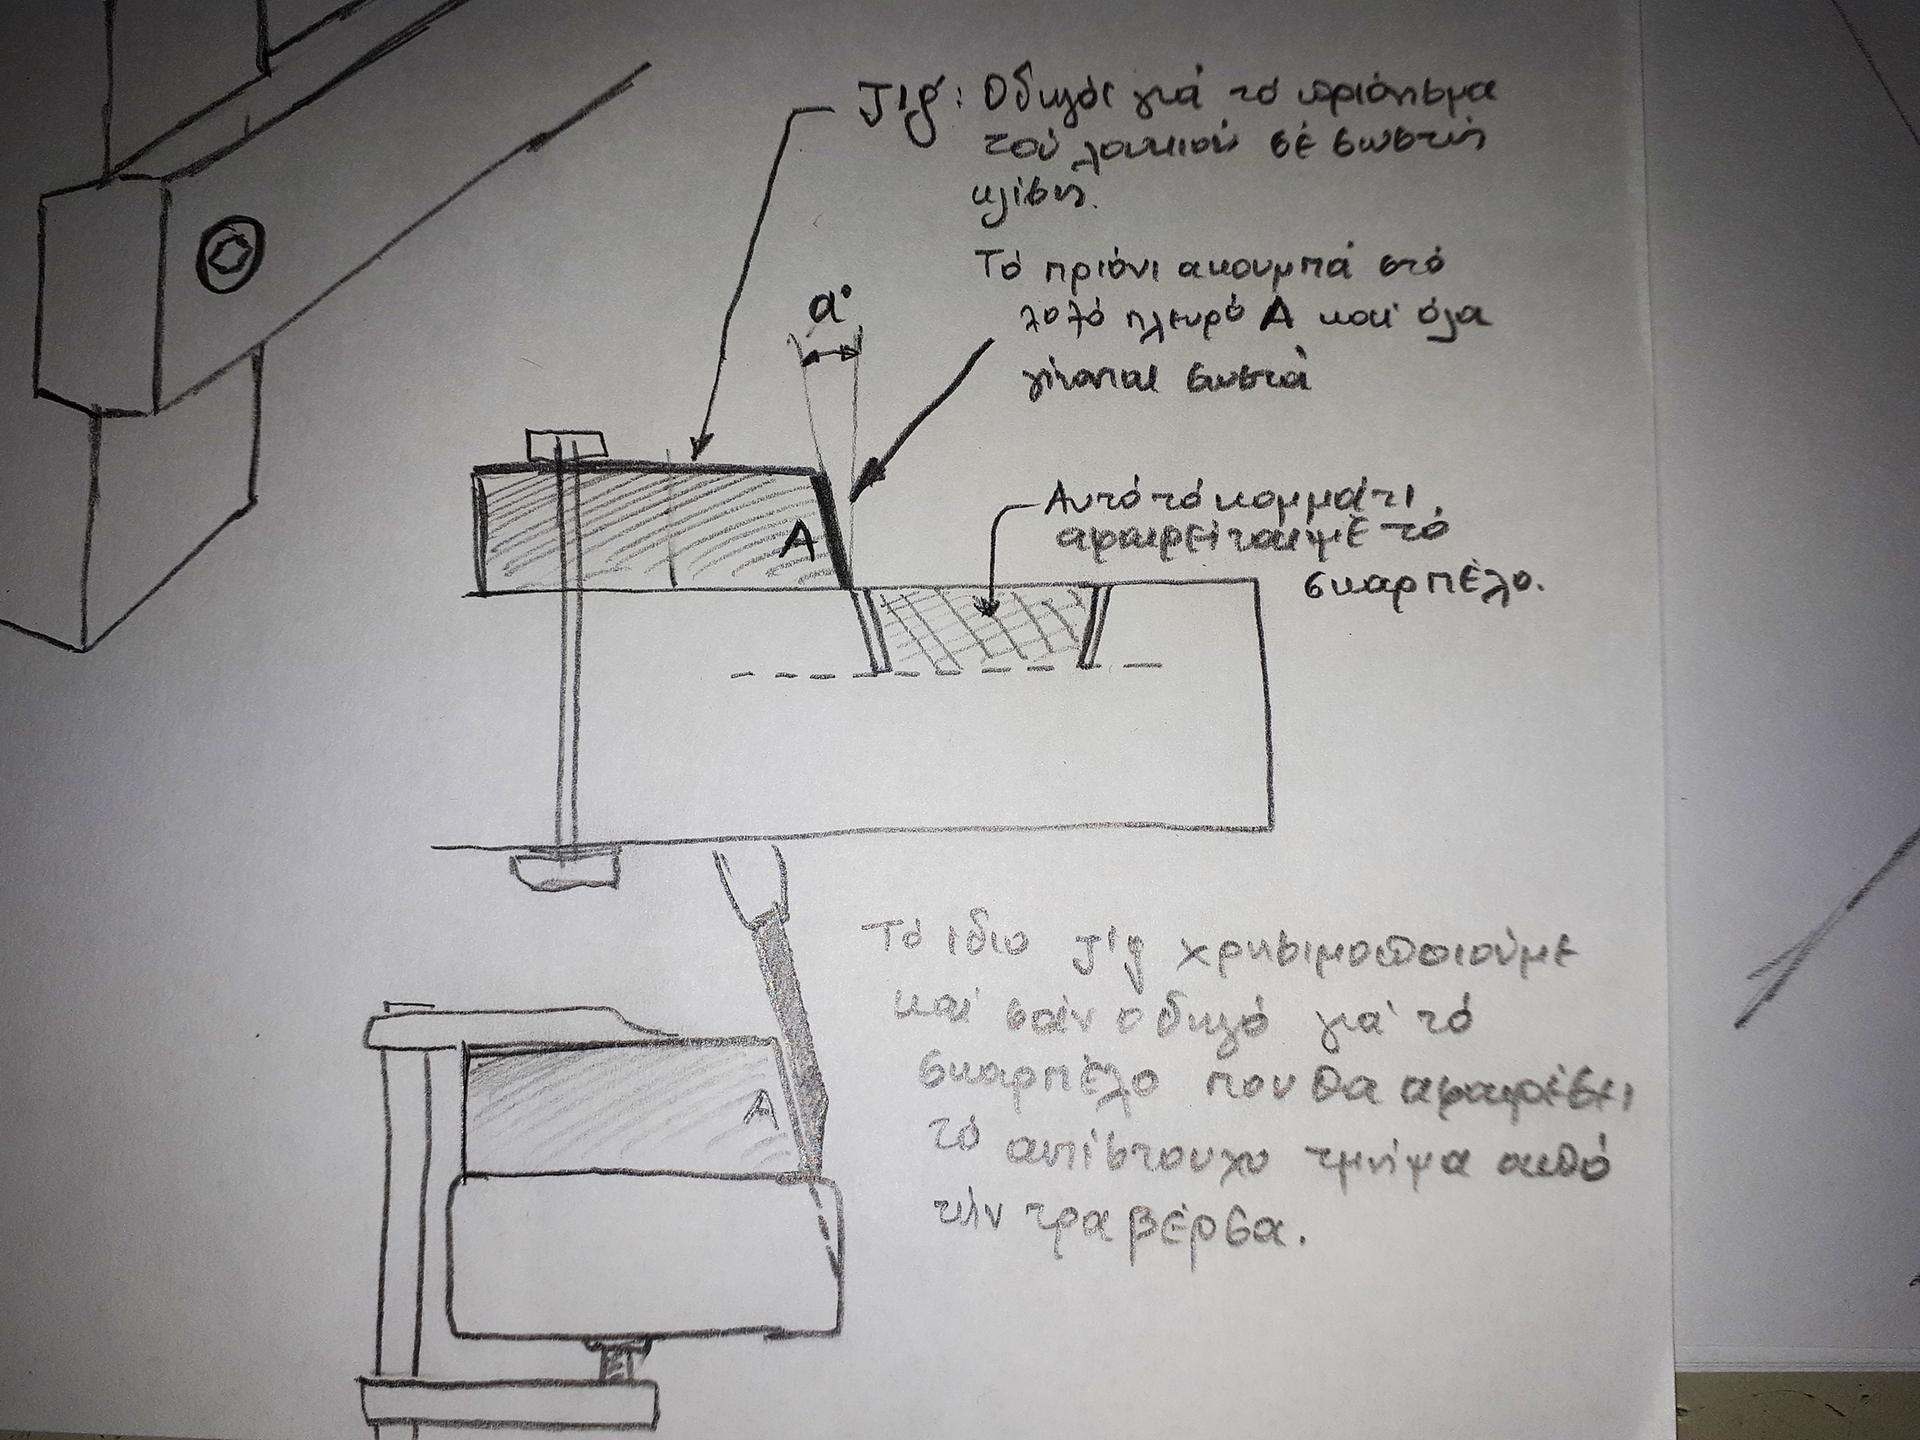 Jig: Οδηγός γιά τό πριόνισμα
τού λουκιού σέ σωστή
κλίση.
Τό πριόνι ακουμπά στό
λοξό πλευρό A καί όλα
γίνονται σωστά
α°
A
Αυτό τό κομμάτι
αφαιρείται μέ τό
σκαρπέλο.
Τό ίδιο Jig χρησιμοποιούμε
καί σάν οδηγό γιά τό
σκαρπέλο που θα αφαιρέσει
τό αντίστοιχο τμήμα από
τήν τραβέρσα.
A